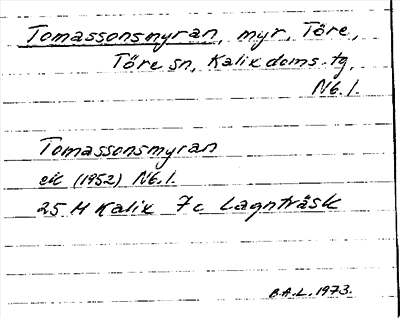 Tomassonsmyran, myr, Töre,
Töre sn, Kalix doms.tg,
Nb.l.
Tomassonsmyran
ek (1952) Nb.l.
25 M Kalix 7c Lagnträsk
B.A.L. 1973.